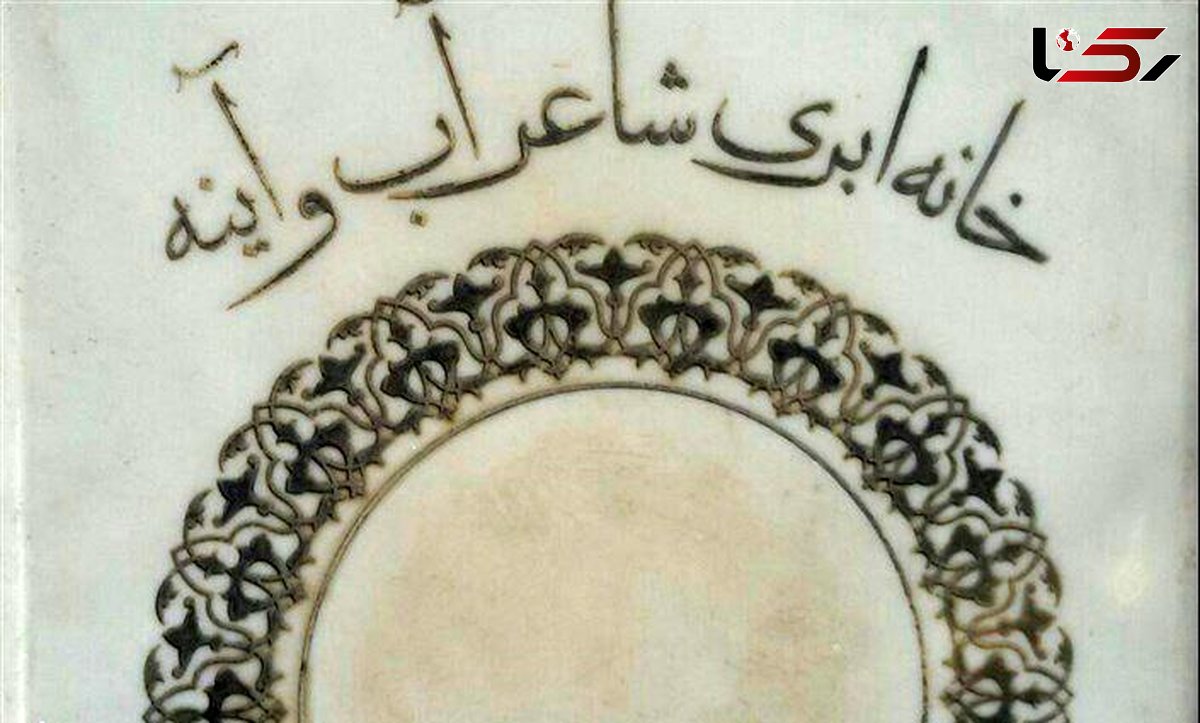 خانه ابری شاعر آب و آینه
رکنا